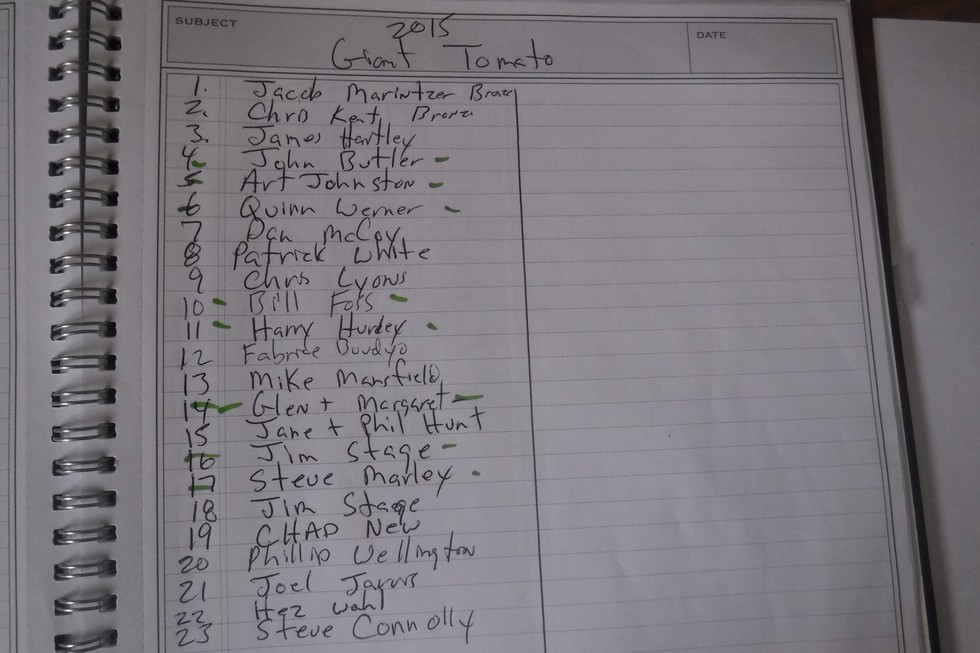 SUBJECT
2015
DATE
Giant Tomato
1. Jacob Marintzer
2. Chris Kent Bronz
3. James Hartley
4 John Butler -
5 Art Johnston -
6 Quinn Werner -
7 Dan McCoy
8 Patrick White
9 Chris Lyons
10 - Bill Foss -
11 - Harry Hurley -
12 Fabrice
13 Mike Mansfield
14 - Glen + Margaret -
15 Jane + Phil Hunt
16 Jim Stage -
17 Steve Marley -
18 Jim Stage
19 CHAD New
20 Phillip Wellington
21 Joel Jarvis
22 Hez Wahl
23 Steve Connolly